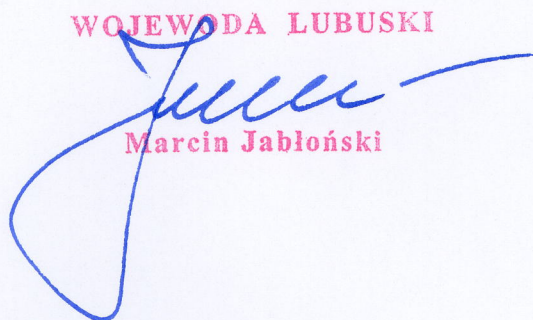 WOJEWODA LUBUSKI
Marcin Jabłoński